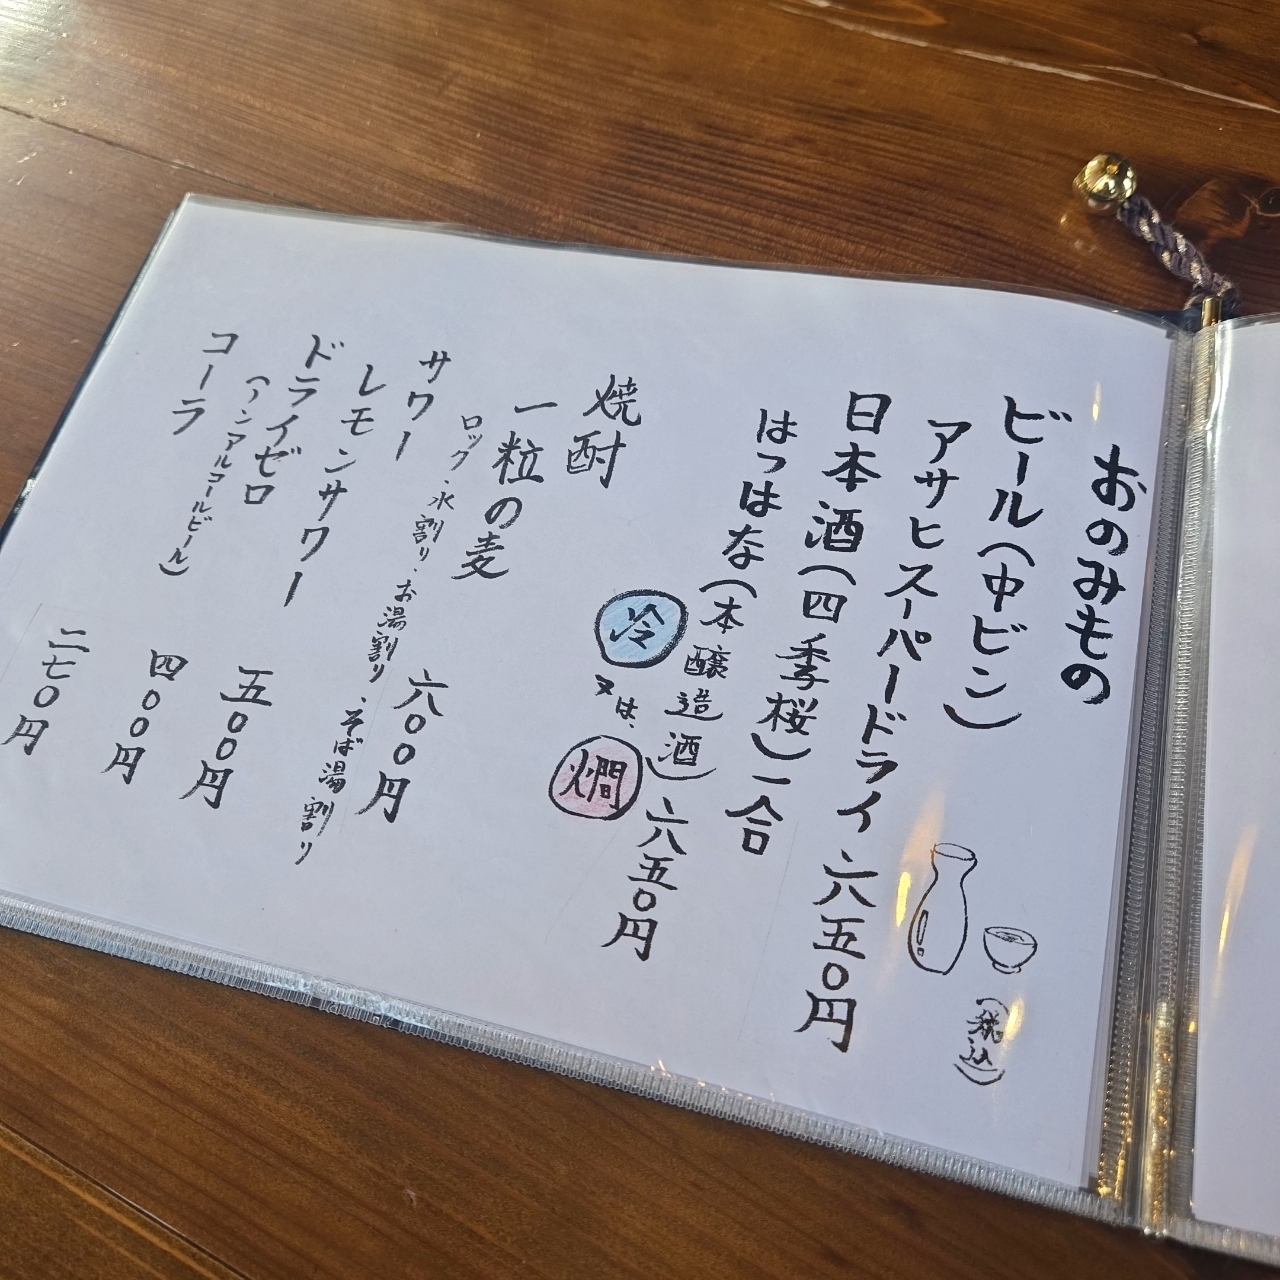 おのみもの
(税込)
ビール(中ビン)
アサヒスーパードライ 六五〇円
日本酒(四季桜)一合
はつはな(本醸造酒) 六五〇円
冷 又は、 燗
焼酎
一粒の麦 六〇〇円
ロック・水割り・お湯割り・そば湯割り
サワー
レモンサワー 五〇〇円
ドライゼロ 四〇〇円
(ノンアルコールビール)
コーラ 二七〇円